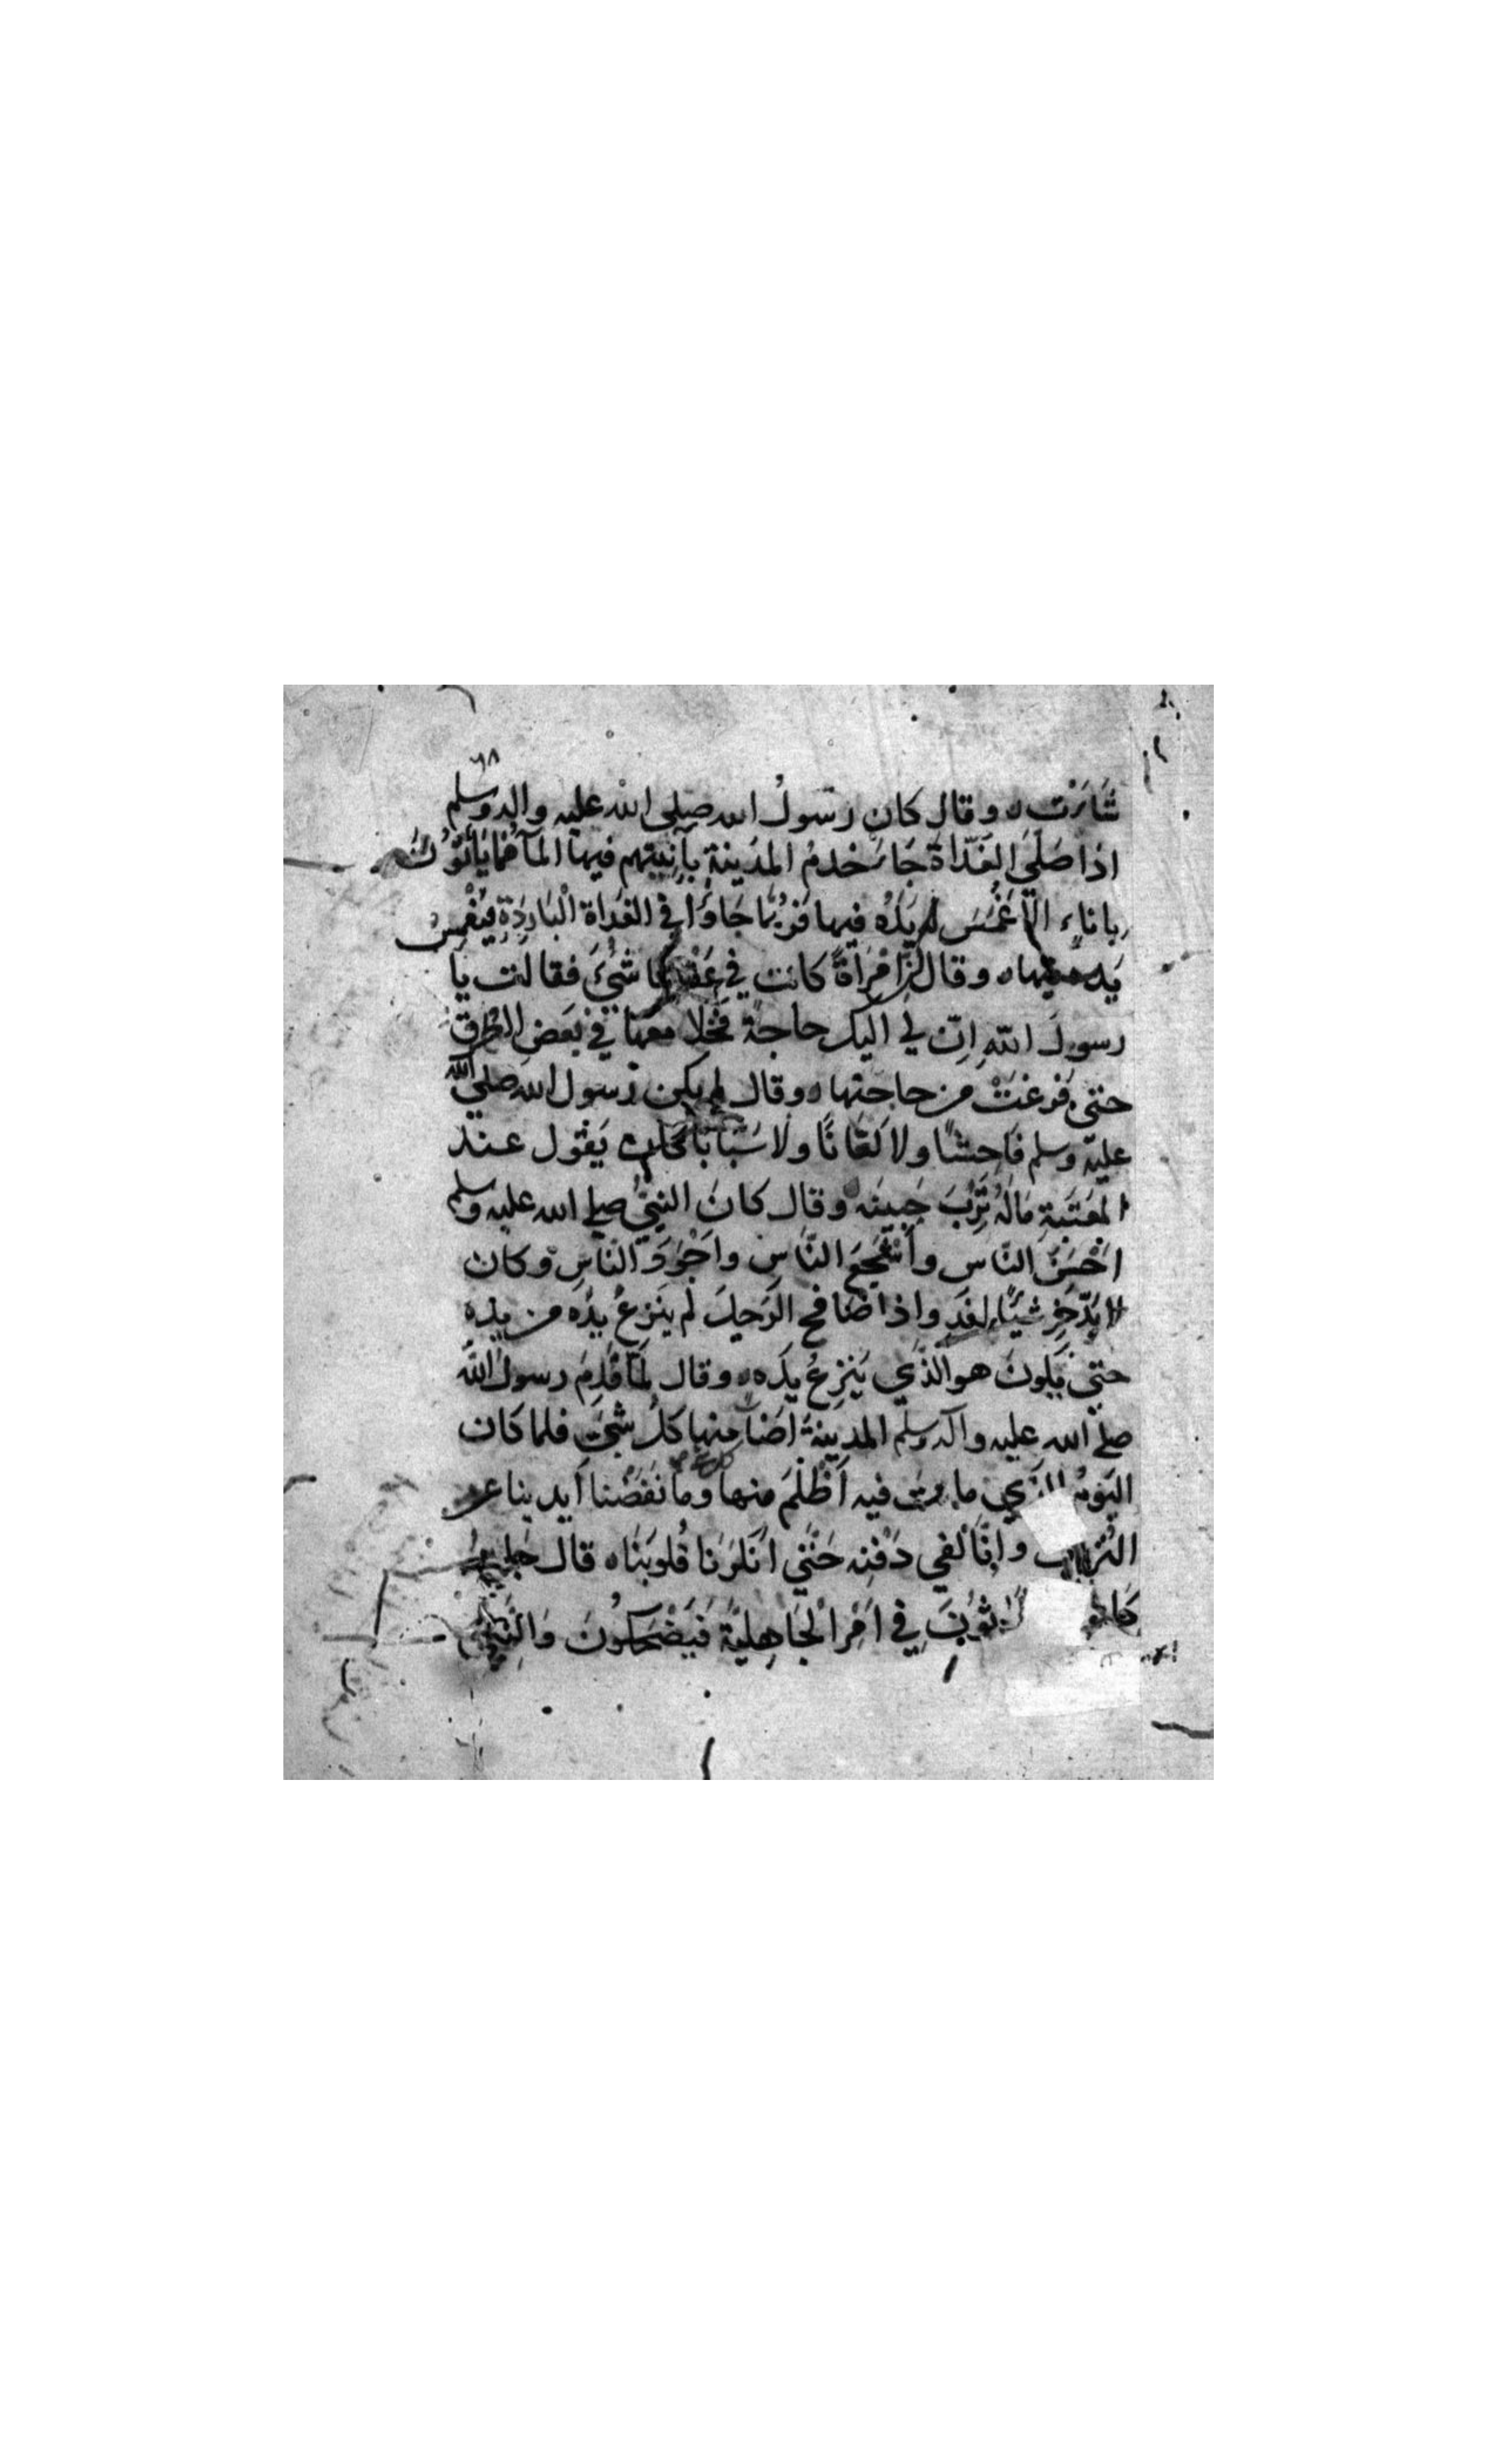 ٦٨
شَاءَتْ ه وقال كان رسولُ الله صلى الله عليه واله وسلم
اذا صَلَّى الغَدَاةَ جَاءَ خدمُ المدينةِ بآنيتهم فيها المآء فما يأتون
باناءٍ الّا غَمَسَ يَدَهُ فيها فرُبَّما جَاؤَا في الغداةِ الْبَارِدَةِ فيَغْمِسُ
يده فيها ه وقال امْرَاةً كانت في عَقْلها شَيْءٌ فقالت يا
رسولَ اللهِ اِنّ لي اليك حاجةً فخلا معها في بعض الطرق
حتى فرغتْ من حاجتها ه وقال لم يكن رسول الله صلى الله
عليه وسلم فاحشًا ولا لعّانًا ولا سَبّابًا كان يَقُول عند
المعْتَبَةِ مَالَهُ تَرِبَ جَبِينه وقال كانَ النبيُّ صلى الله عليه وسلم
اَحْسَنَ النّاسِ وأشْجَعَ النَّاسِ واَجْوَدَ النّاسِ وكان
لا يَدّخِر شيئًا لغدٍ واذا صَافح الرَّجلَ لم ينزعُ يده من يده
حتى يكونَ هو الذّي يَنزعُ يده ه وقال لمّا قَدِمَ رسولُ الله
صلى الله عليه وآله وسلم المدينةَ اضَآءَ منها كلُّ شيءٍ فلما كان
اليَوْمُ الذي مات فيه اَظْلَمَ منها كل شيء وما نَفَضْنا اَيدينا عن
التُّرَاب واِنّا لفي دَفْنِه حَتّى اَنكَرْنَا قُلوبَنَا ه قال جابر
كانوا ثونَ في اَمْرِ الجَاهِليَّةِ فَيَضْحَكُونَ وَالنَّبِيّ